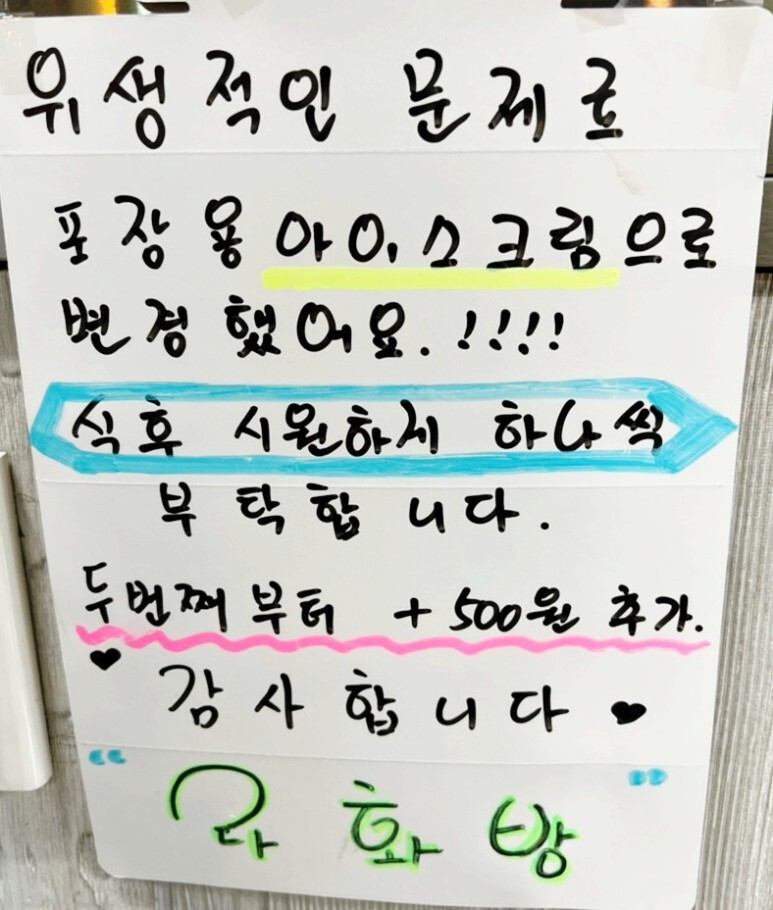 위생적인 문제로
포장용 아이스크림으로
변경했어요.!!!!
식후 시원하게 하나씩
부탁합니다.
두번째부터 +500원 추가.
♥ 감사합니다 ♥
“ 라화방 ”